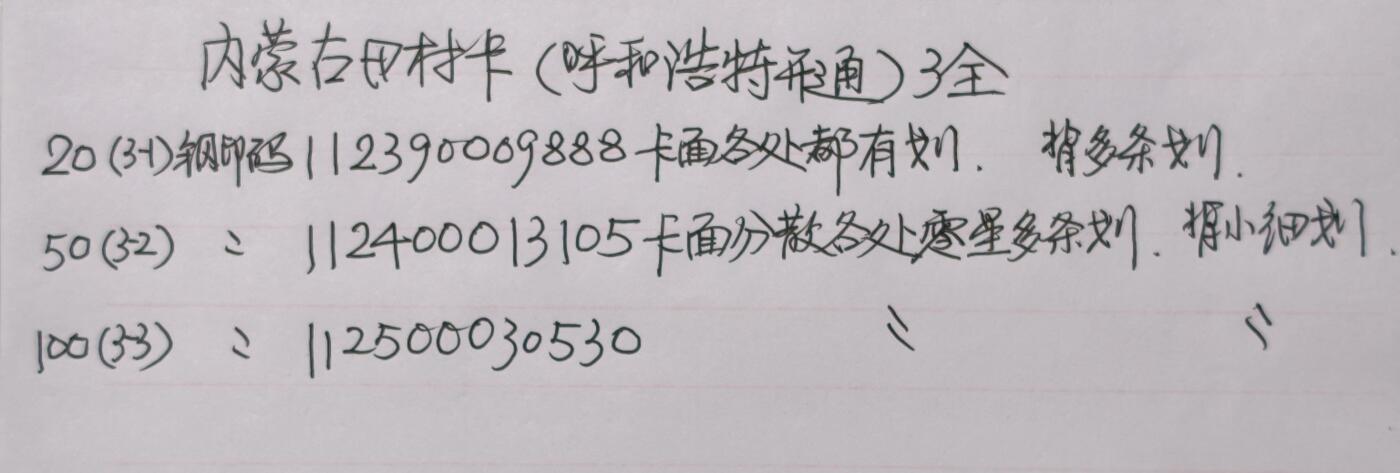 内蒙古田村卡(呼和浩特开通)3全
20(3-1)钢印码112390009888卡面各处都有划. 背多条划.
50(3-2) 〃 112400013105卡面分散各处零星多条划. 背小细划.
100(3-3) 〃 112500030530 〃 〃